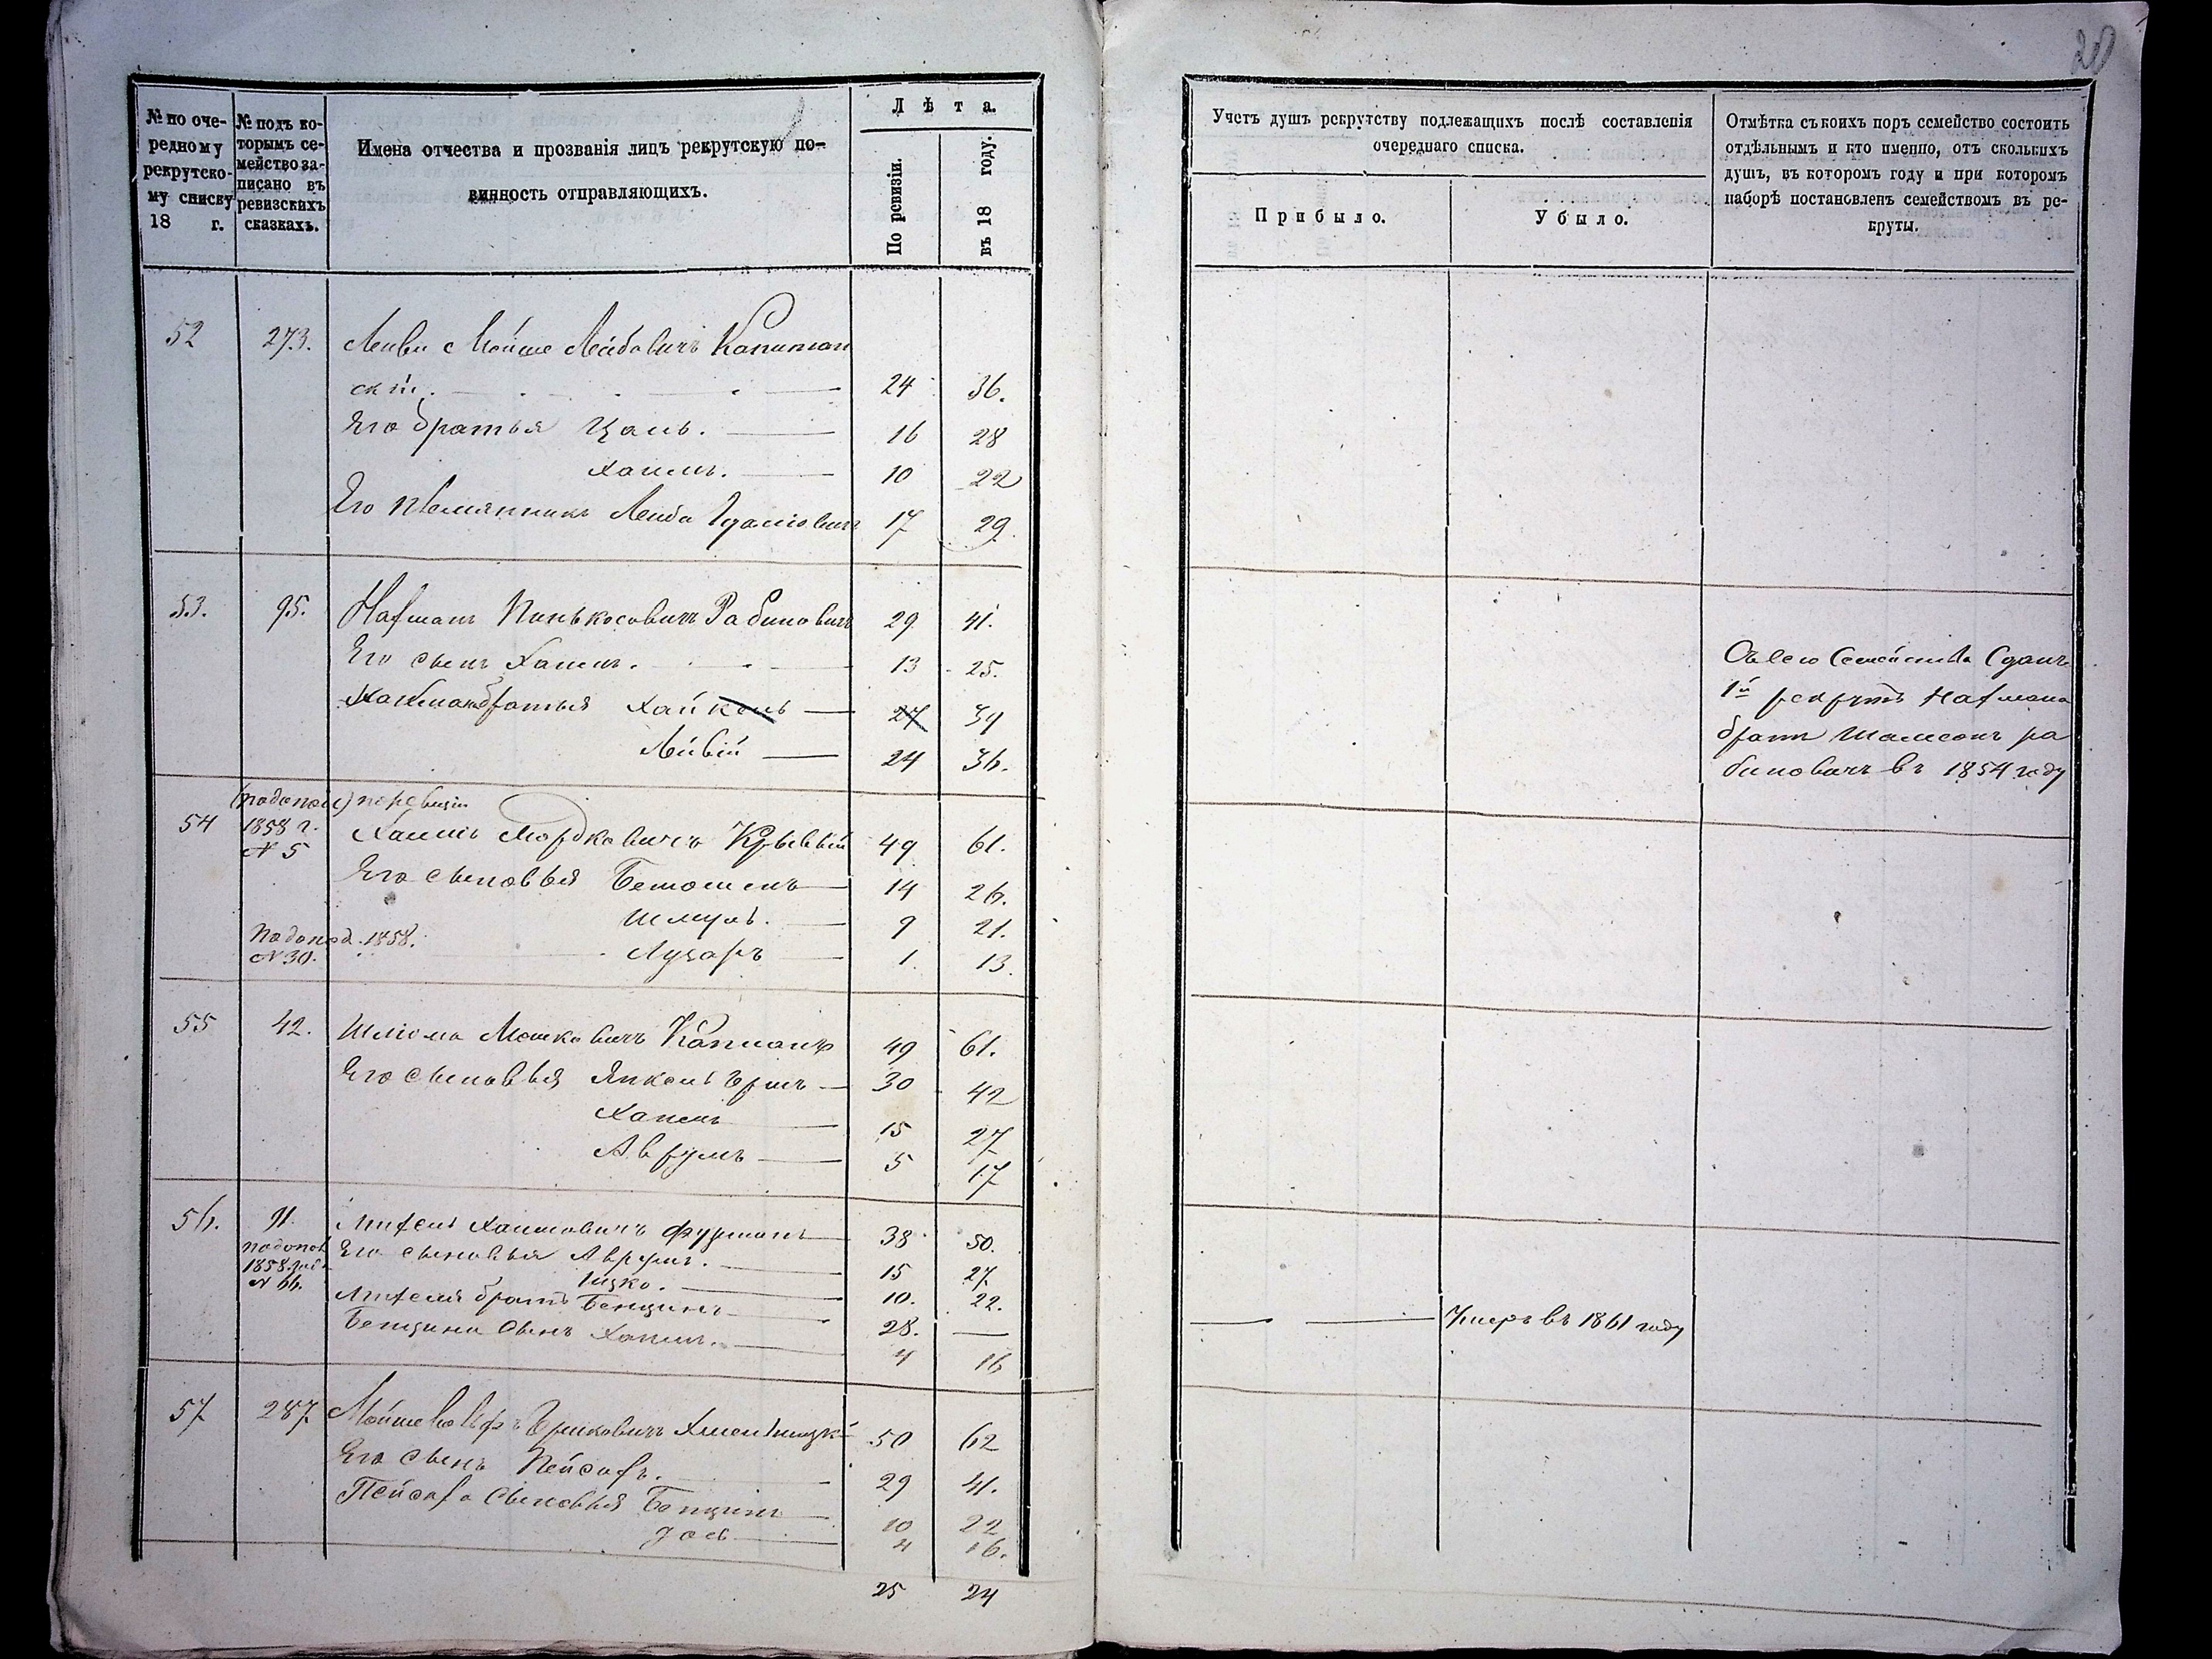 20
№ по оче-
редному
рекрутско-
му списку
18 г.
№ подъ ко-
торымъ се-
мейство за-
писано въ
ревизскихъ
сказкахъ.
Имена отчества и прозванія лицъ рекрутскую по-
винность отправляющихъ.
Лѣта.
По ревизіи.
въ 18 году.
Учетъ душъ рекрутству подлежащихъ послѣ составленія
очереднаго списка.
Прибыло.
Убыло.
Отмѣтка съ коихъ поръ семейство состоитъ
отдѣльнымъ и кто именно, отъ сколькихъ
душъ, въ которомъ году и при которомъ
наборѣ поставленъ семействомъ въ ре-
круты.
52 273. Мойше Лейбовичъ Капитан
скій. 24 36.
Его братья 16 28
Хаимъ. 10 22
Его племянникъ Лейба 17 29.
53. 95. Нахманъ Пинькосовичъ Рабиновичъ 29 41.
Его сынъ Хаимъ. 13 25.
Нахмана братья Хайкель 27 39
Лейвій 24 36.
Отъ сего Семейства Сданъ
1й рекрутъ Нахмана
братъ Шамсонъ Ра
биновичъ въ 1854 году
(по допол) по ревизіи
54 1858 г. Хаимъ Мордковичъ 49 61.
№ 5
Его сыновья 14 26.
Шмуль. 9 21.
По допол. 1858.
№ 30. Лузаръ 1. 13.
55 42. Шліома Мошковичъ Капланъ 49 61.
Его сыновья Янкель Ершъ 30 42
Хаимъ 15 27
Аврумъ 5 17
56. 91. Михель Хаимовичъ Фурманъ 38 50.
по допол Его сыновья Аврумъ. 15 27.
1858 года
№ 66. Ицко. 10. 22.
Михеля братъ Бенционъ 28. — Умеръ въ 1861 году
Бенциона сынъ Хаимъ. 4 16
57 287 Мойше Вольфъ Ершковичъ Хмельницкі 50 62
Его сынъ Пейсахъ. 29 41.
Пейсаха сыновья Бенционъ 10 22
Іось 4 16.
25 24